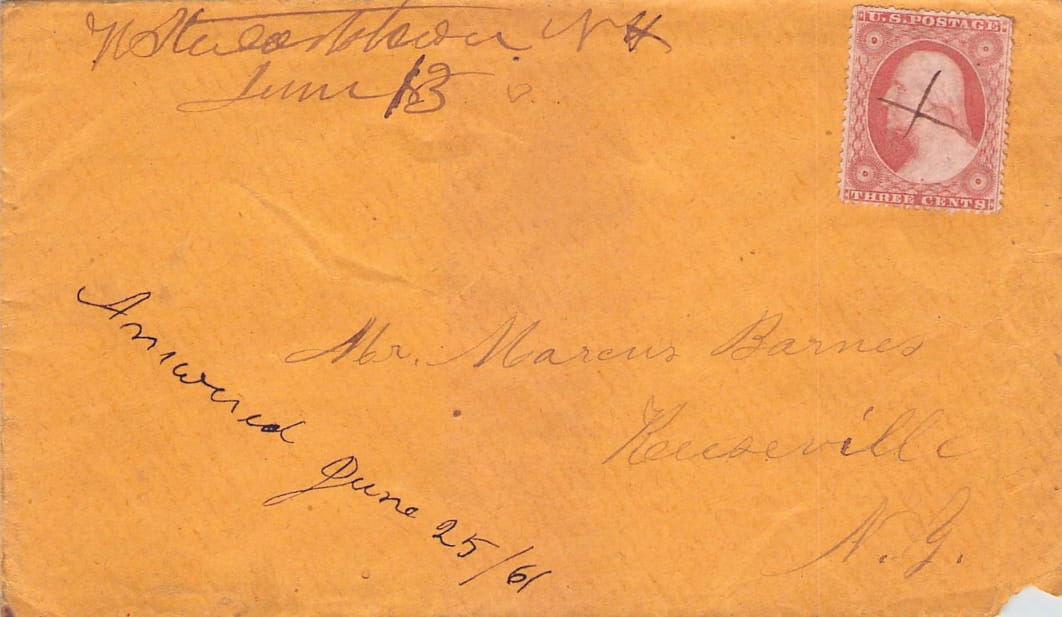 W Stewartstown N H
June 13
U.S. POSTAGE
THREE CENTS
Mr. Marcus Barnes
Keeseville
N.Y.
Answered June 25/61